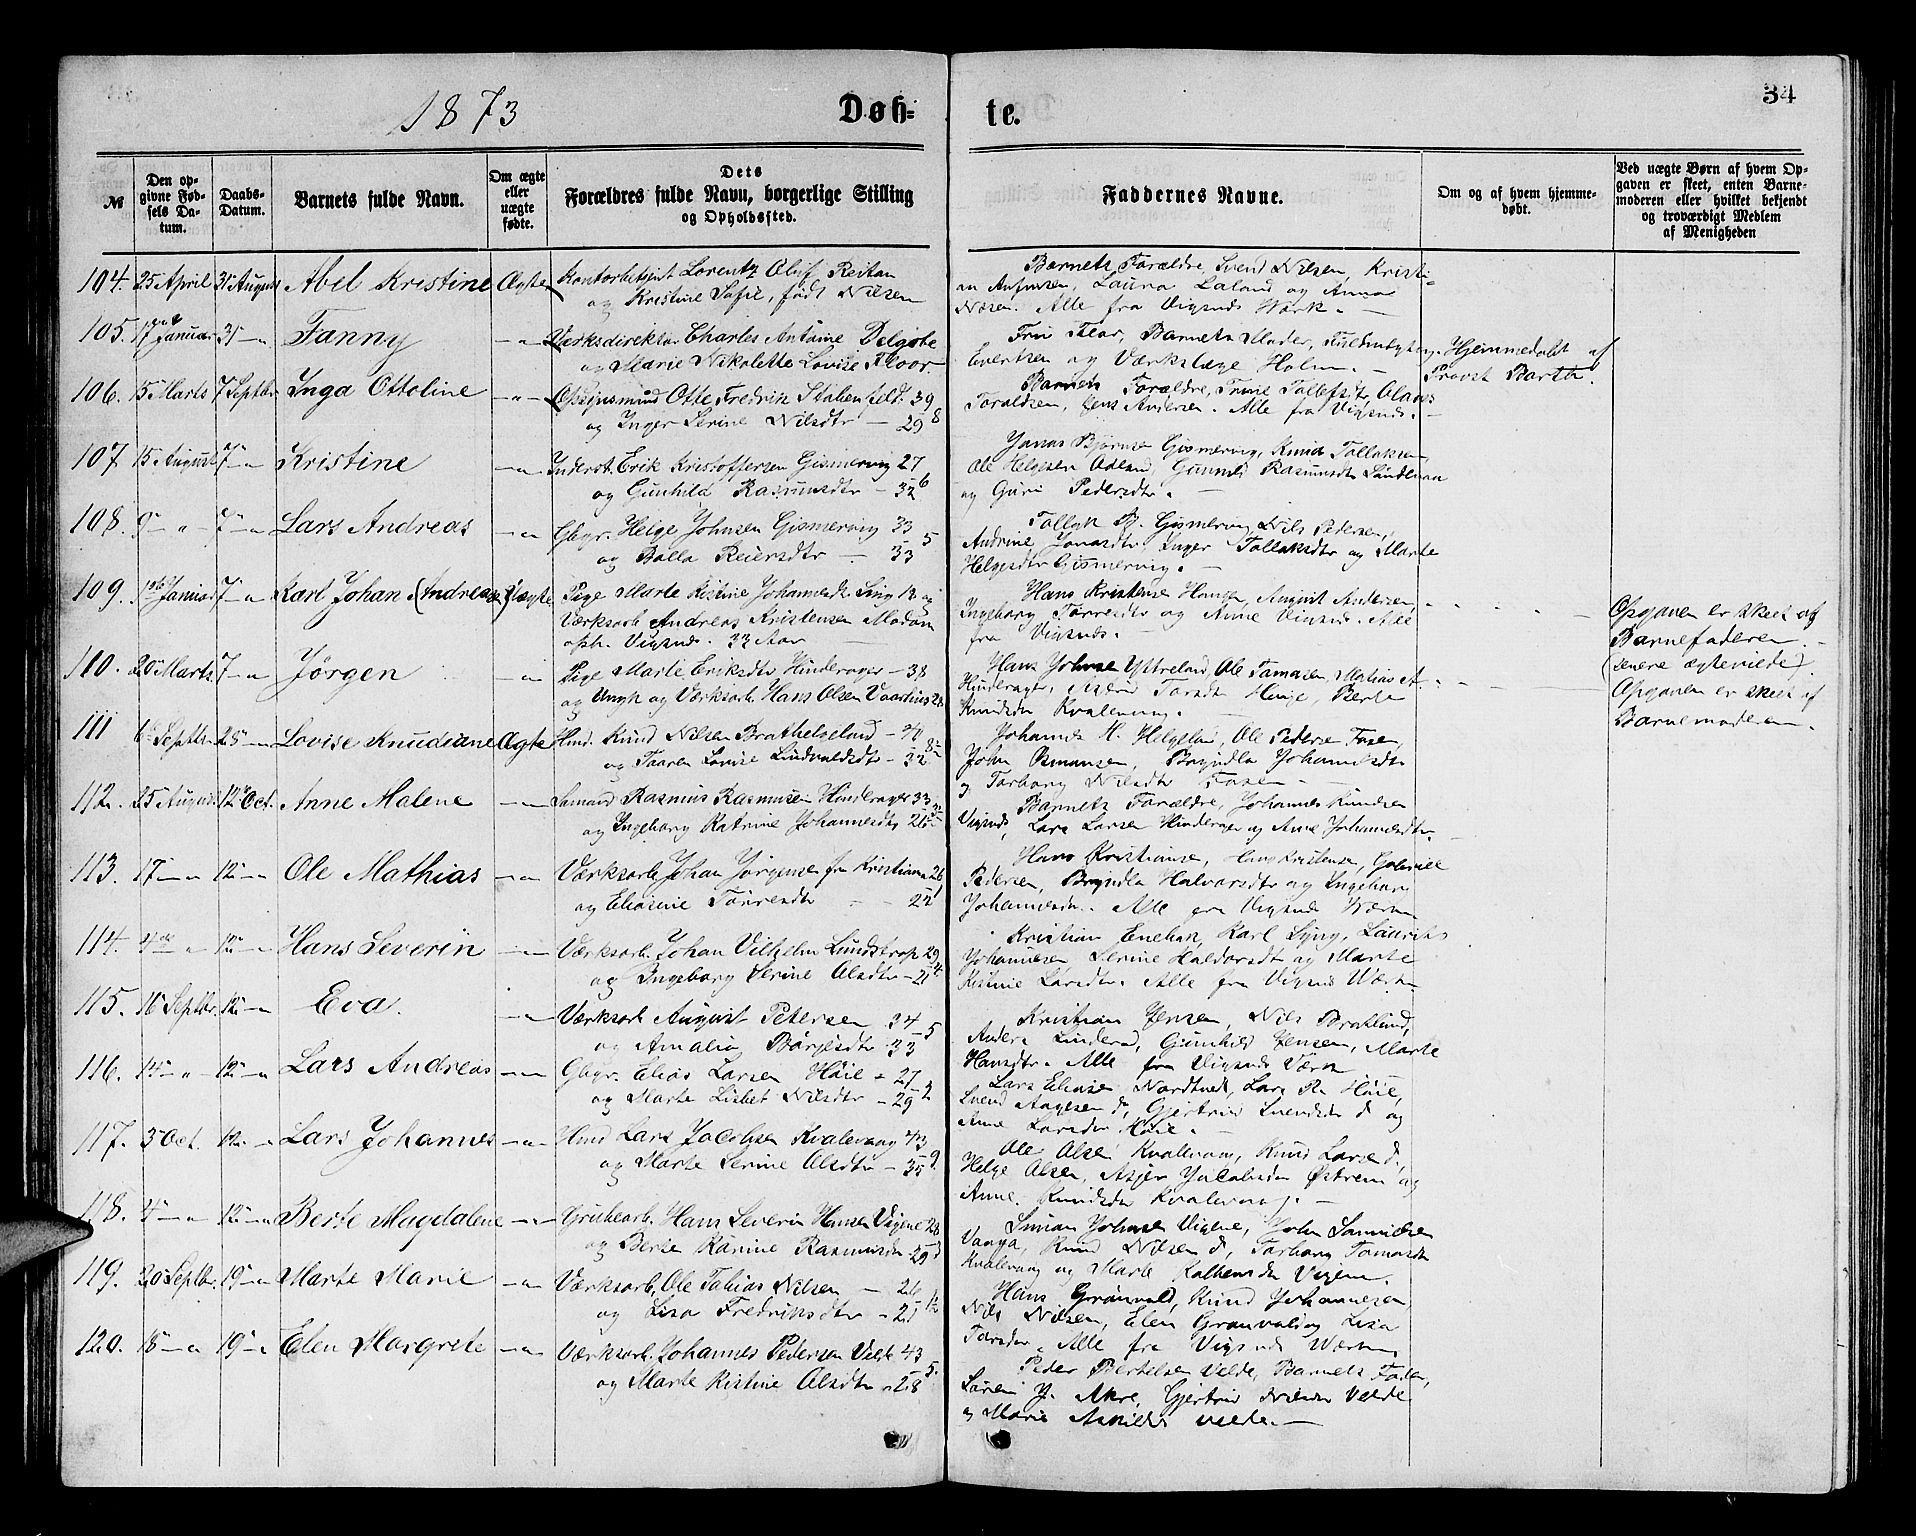 1873
Døb-
te.
34
№
Den op-
givne Fød-
sels Da-
tum.
Daabs-
Datum.
Barnets fulde Navn.
Om ægte
eller
uægte
fødte.
Dets
Forældres fulde Navn, borgerlige Stilling
og Opholdssted.
Faddernes Navne.
Om og af hvem hjemme-
døbt.
Ved uægte Børn af hvem Op-
gaven er skeet, enten Barne-
moderen eller hvilket bekjendt
og troværdigt Medlem
af Menigheden
104. 25 April 31 August Abel Kristine Ægte Kontorbetjent Lorentz Oluf Reitan
og Kristine Sofie, født Nilsen
Barnets Forældre, Svend Nilsen, Kristi-
an Anfinsen, Laura Laland og Anna
Nilsen. Alle fra Vigsnæs Værk. —
105. 17 Januar 31 — " Fanny — " — Værksdirektør Charles Antoine Delgobe
og Marie Nikolette Lovise Floor
Fru Floor, Barnets Moder, Fuldmægtig
Evertsen og Værkslæge Holm. —
Hjemmedøbt af
Provst Barth.
106. 5 Marts 7 Septbr Inga Ottoline — " — Opsynsmand Otto Fredrik Stakenfeldt 39
og Inger Serine Nilsdtr — 29 8
Barnets Forældre, Trine Tollefsdtr, Olaves
Toraldsen, Jens Andersen. Alle fra Vigsnes. —
107 15 August 7 — " Kristine — " Inderst. Erik Kristoffersen Gismervig 27
og Gunhild Rasmusdtr — 32 6
Jonas Bjørnsen Gismervig, Knud Tollaksen
Ole Helgesen Adland, Gunnild Rasmusdtr
og Guri Pedersdtr. —
108. 9 — " — 7 — " Lars Andreas — " Gbgr. Helge Johnsen Gismervig 33
og Bolla Reiersdtr — 33 5
Tollak B. Gismervig, Nils Pedersen,
Andrine Jonasdtr, Inger Tollaksdtr og Marte
Helgesdtr Gismervig. —
109. Januar 7 — " Karl Johan (Andreas) Uægte Pige Marte Kistine Johannesdtr
Værksarb. Andreas Kristensen
oph. Vigsnes. 33 Aar
Hans Kristensen Hansen August Andersen,
Ingeborg Torresdtr og Anne Vigsnes. Alle
fra Vigsnes. —
Opgaven er skeet af
Barnefaderen. —
(senere ægteviede)
110. 20 Marts 7 — " Jørgen — " Pige Marte Eriksdtr Hinderager — 38
og Ungk og Værksarb. Hans Olsen 28
Hans Johnsen Yttreland, Ole Tomasen, Matias A.
Hinderager, Torsdtr Høie, Berta
Knudsdtr Kvalevaag. —
Opgaven er skeet af
Barnemoderen.
111 6 Septbr 28 — " Lovise Knudiane Ægte Hmd. Knud Nilsen Brathelseland — 40
og Taaren Lovise Lindvaldsdtr — 32 8
Johannes H. Helgeland, Ole Pedersen Fosen,
John Osmunsen, Bryndla Johannesdtr
og Torborg Nilsdtr Fosen —
112. 25 August 12 Oct. Anne Malene — " Rasmus Rasmusen Hinderager 33
og Ingeborg Katrine Johannesdtr 26
Barnets Forældre, Johannes Knudsen
Vigsnes, Lars Larsen Hinderager og Anne Johannesdtr.
113. 17 — " 12 — " Ole Mathias — " — Værksarb. Johan Jørgensen fra Kristiania 26
og Eliasine Torresdtr — — 22 1
Hans Kristiansen, Hans Kristensen, Gabriel
Pedersen, Bryndla Halvorsdtr og Ingeborg
Johannesdtr. Alle fra Vigsnes Værk
114. 4 " 12 — " Hans Severin — " — Værksarb. Johan Vilhelm Lundstrop 29
og Ingeborg Serine Olsdtr — 21 4
Kristian Enehan, Karl Ljung, Laurits
Johannesen, Serine Haldorsdtr og Marte
Kistine Larsdtr. Alle fra Vigsnes Værk
115. 16 Septbr. 12 — " Eva. — " — Værksarb. August Petersen 34
og Amalia Börjesdtr 33 5
Kristian Jensen, Nils Bratlund,
Anders Linderød, Gunhild Jensen, Marte
Hansdtr. Alle fra Vigsnes Værk
116. 14 — " 12 — " Lars Andreas — " — Gbgr. Elias Larsen Høie — 27
og Marte Lisbet Nilsdtr — 29 2
Lars Eliasen Nordtveit, Lars R. Høie,
Svend Aagesen d, Gjertrud Svendsdtr d og
Anne Larsdtr Høie. —
117. 3 Oct. 12 — " Lars Johannes — " — Hmd Lars Jacobsen Kvalevaag 43
og Marte Serine Olsdtr — 35 9
Ole Olsen Kvalevaag, Knud Larsen d,
Helge Olsen, Asjer Jakobsdtr Østrem og
Anne Knudsdtr Kvalevaag. —
118. 4 — " 12 — " Berte Magdalene — " — Grubearb. Hans Severin Hansen Vigene 28
og Berte Karine Rasmusdtr 29
Simon Johnsen Vigene, John Samuelsen
Vaaga, Knud Nilsen d, Torborg Tomasdtr
Kvalevaag og Marte Vigene.
119. 20 Septbr. 19 — " Marte Marie — " — Værksarb. Ole Tobias Nilsen — 26
og Lisa Fredriksdtr — 21
Hans Grønvold, Knud Johannesen,
Nils Nilsen, Elen Grønvold og Lisa
Torsdtr. Alle fra Vigsnes Værk
120. 18 — " 19 — " Elen Margrete — " — Værksarb. Johannes Pedersen Velde 43
og Marte Kistine Olsdtr — 28 5.
Peder Bertelsen Velde, Barnets Fader,
Søren J. Akre, Gjertrud Nilsdtr Velde
og Marie Velde. —